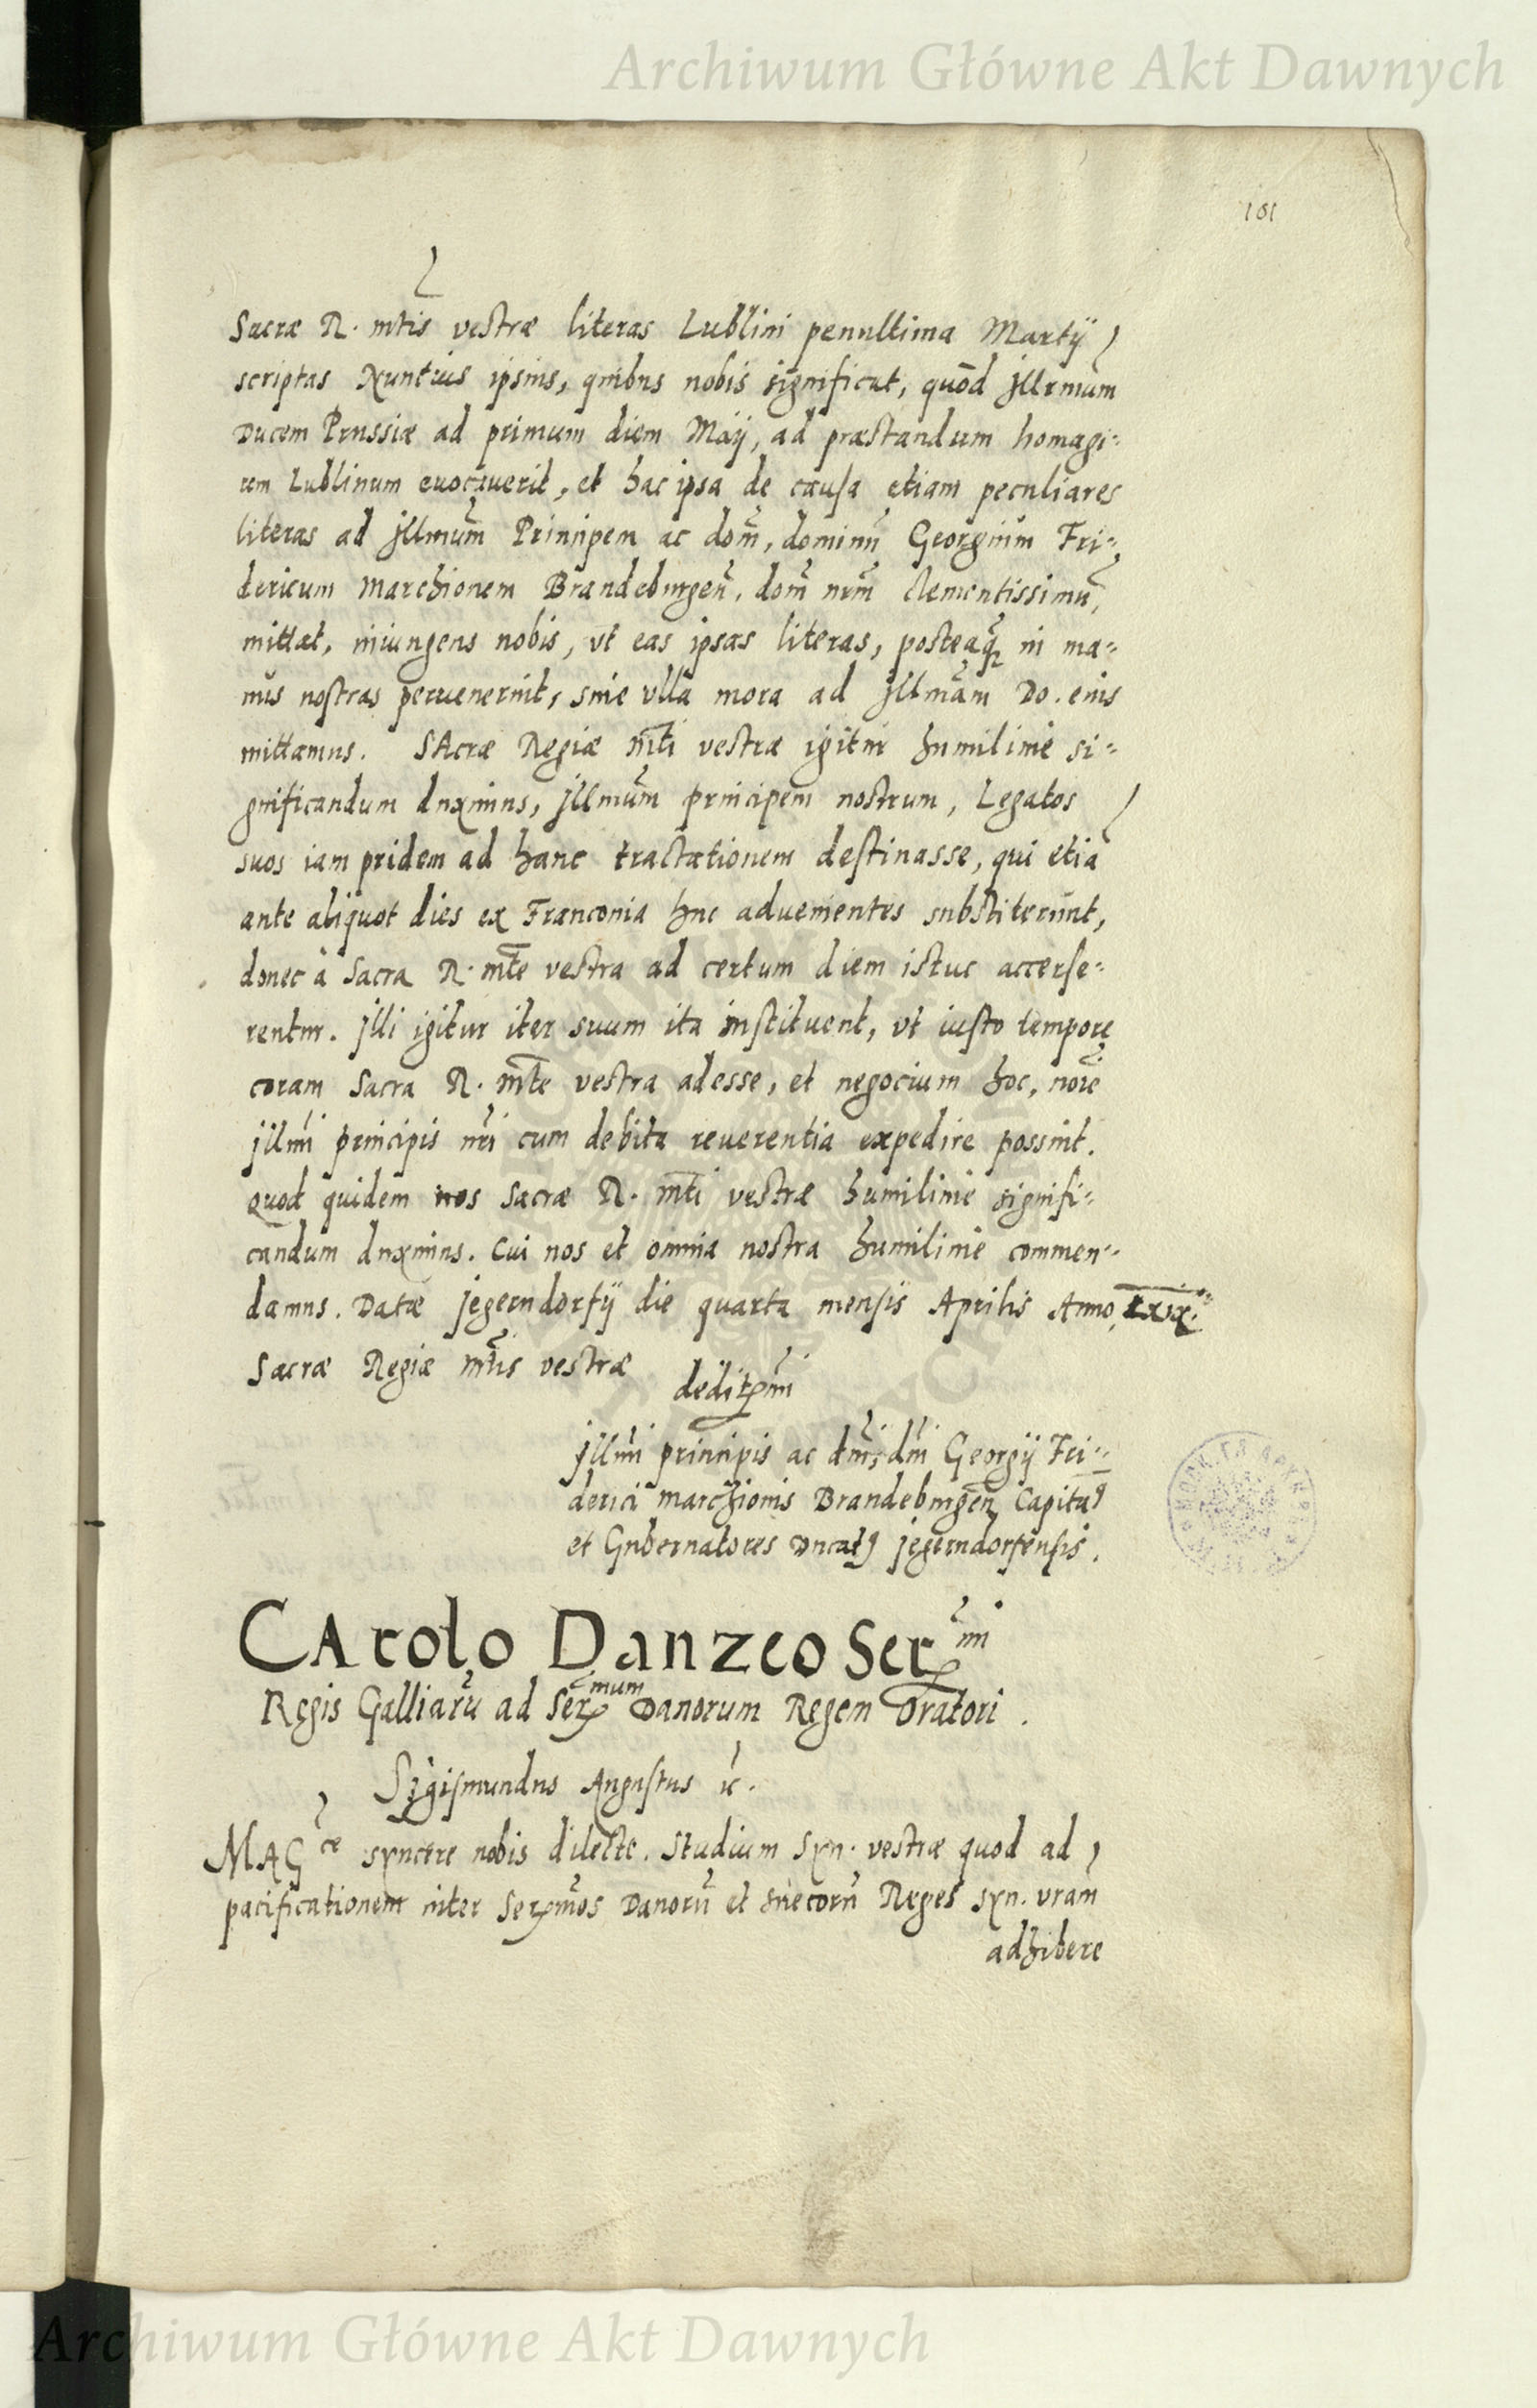 Archiwum Główne Akt Dawnych
101
Sacræ R. mtis vestræ literas Lublini penultima Martij
scriptas Nuntius ipsius, quibus nobis significat, quòd jllrmum
Ducem Prussiæ ad primum diem Maij, ad præstandum homagi=
um Lublinum euocauerit, et hac ipsa de causa etiam peculiares
literas ad jllmum Principem ac dom, dominu Georgium Fri=
dericum Marchionem Brandeburgen, dom nrm clementissimu,
mittat, iniungens nobis, vt eas ipsas literas, posteaq in ma=
nus nostras peruenerint, sine vlla mora ad jllmam Do. eius
mittamus. SAcræ Regiæ mti vestræ igitur humilimè si=
gnificandum duximus, jllmum principem nostrum, Legatos
suos iam pridem ad hanc tractationem destinasse, qui etia
ante aliquot dies ex Franconia huc aduenientes substiterunt,
donec à Sacra R. mte vestra ad certum diem istuc accerse=
rentur. jlli igitur iter suum ita instituent, vt iusto tempore
coram Sacra R. mte vestra adesse, et negocium hoc, noie
jllmi principis nri cum debita reuerentia expedire possint.
Quod quidem nos Sacræ R. mti vestræ humilimè signifi=
candum duximus. Cui nos et omnia nostra humilimè commen=
damus. Datæ jegerndorfij die quarta mensis Aprilis Anno, LXIX.
Sacræ Regiæ mtis vestræ deditmi
jllmi principis ac dmi, dni Georgij Fri=
derici marchionis Brandeburgen Capita9
et Gubernatores Ducat9 jegerndorfensis.
CArolo Danzeo Ser mi
Regis Galliaru ad Ser mum Danorum Regem Oratori.
Sigismundus Augustus &c.
MAG ce syncere nobis dilecte. Studium Syn. vestræ quod ad
pacificationem inter Sermos Danoru et Suecoru Reges Syn. vram
adhibere
Archiwum Główne Akt Dawnych